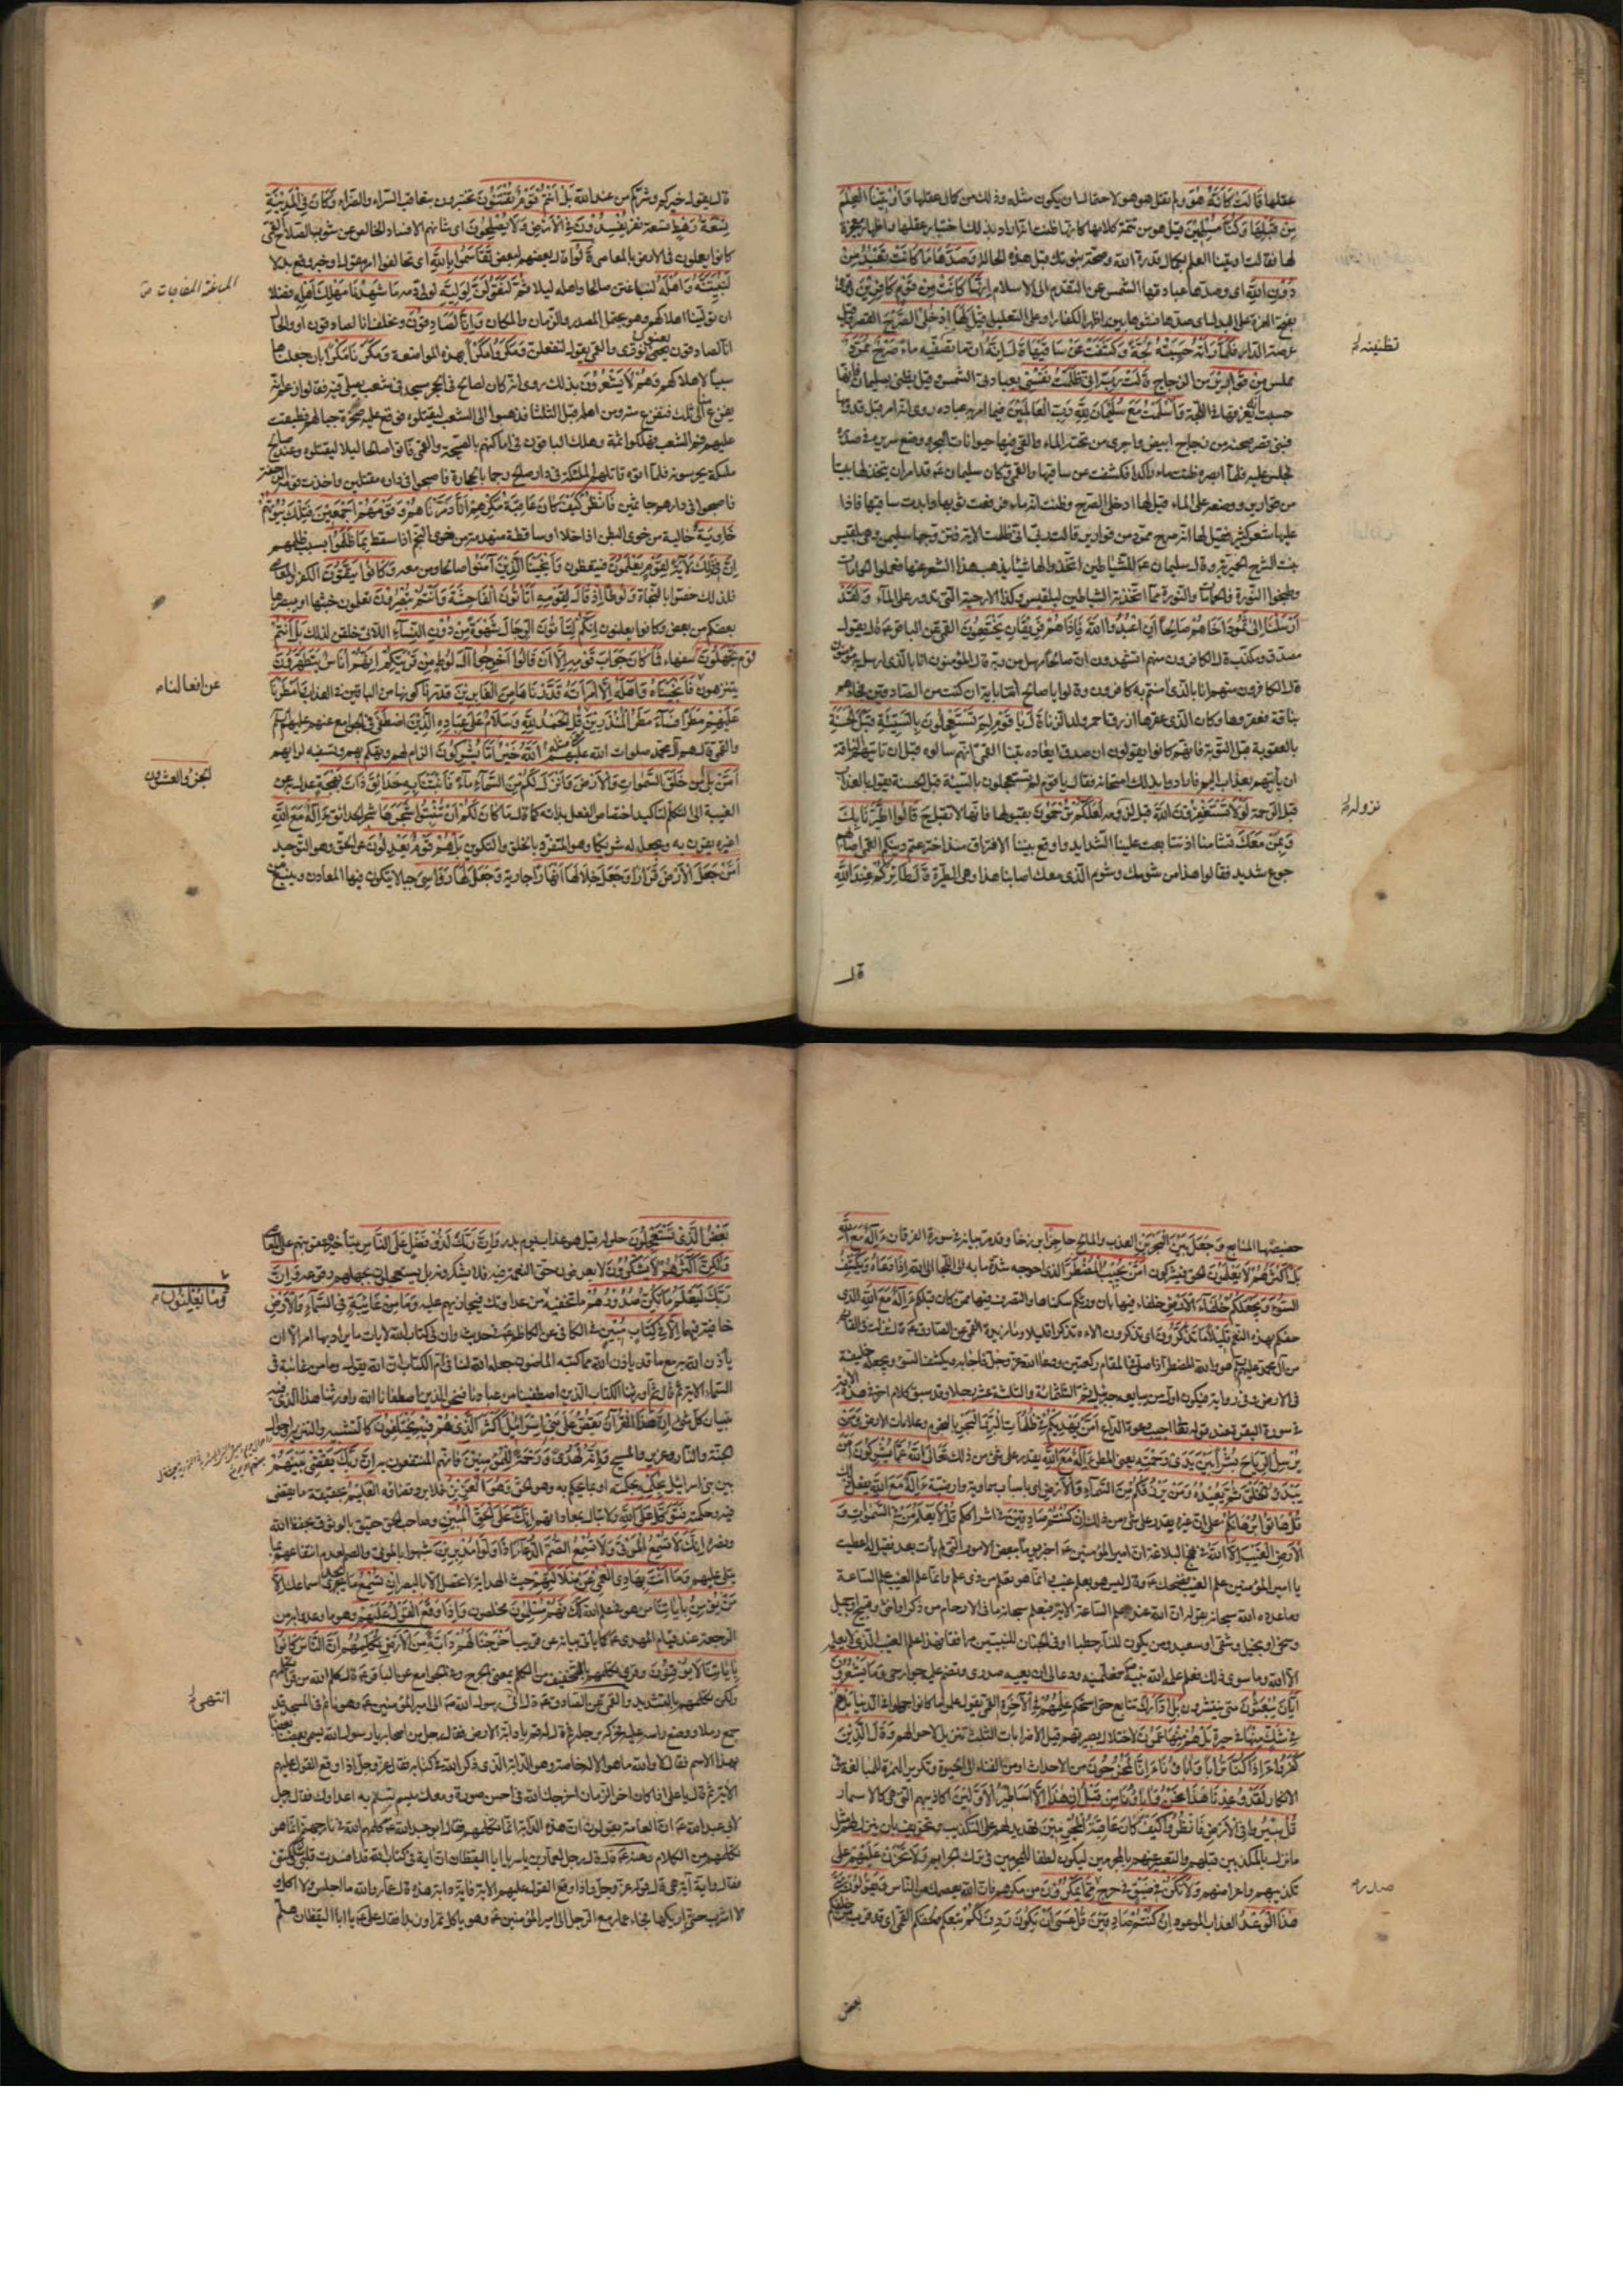 عقلها قَالَتْ كَأَنَّهُ هُوَ ولم تقل هو هو لاحتمال ان يكون مثله وذلك من كمال عقلها وَأُوتِينَا الْعِلْمَ
مِنْ قَبْلِهَا وَكُنَّا مُسْلِمِينَ قيل هو من تتمة كلامها كانها ظنت انه اراد بذلك اختبار عقلها واظهار معجزة
لها فقالت اوتينا العلم بكمال قدرة الله وصحة نبوتك قبل هذه الحالة وَصَدَّهَا مَا كَانَتْ تَعْبُدُ مِنْ
دُونِ اللهِ اى وصدها عبادتها الشمس عن التقدم الى الاسلام إِنَّهَا كَانَتْ مِنْ قَوْمٍ كَافِرِينَ
بفتح الهمزة على الابدال اى صدها نشوها بين اظهر الكفار او على التعليل قِيلَ لَهَا ادْخُلِي الصَّرْحَ القصر وقيل
عرصة الدار فَلَمَّا رَأَتْهُ حَسِبَتْهُ لُجَّةً وَكَشَفَتْ عَنْ سَاقَيْهَا قَالَ إِنَّهُ ان ما تظنينه ماء صَرْحٌ مُمَرَّدٌ
مملس مِنْ قَوَارِيرَ من الزجاج قَالَتْ رَبِّ إِنِّي ظَلَمْتُ نَفْسِي بعبادتى الشمس وقيل بظنى بسليمان فانها
حسبت انه يغرقها فى اللجة وَأَسْلَمْتُ مَعَ سُلَيْمَانَ لِلهِ رَبِّ الْعَالَمِينَ فيما امر به عباده روى انه امر قبل قدومها
فبنى قصر صحنه من زجاج ابيض واجرى من تحته الماء والقى فيها حيوانات البحر ووضع سريره فى صدره
فجلس عليه فلما ابصرته ظنت ماء راكدا فكشفت عن ساقيها والقمى وكان سليمان ع قد امر ان يتخذ لها بيتا
من قوارير ووضعه على الماء ثم قيل لها ادخلى الصرح وظنت انه ماء فرفعت ثوبها وابدت ساقيها فاذا
عليها شعر كثير فقيل لها انه صرح ممرد من قوارير قالت رب انى ظلمت الاية فتزوجها سليمن وهى بلقيس
بنت الشرح الحميرية وقال سليمان ع للشياطين اتخذوا لها شيئا يذهب هذا الشعر عنها فعملوا الحمامات
وطبخوا النورة فالحمامات والنورة مما اتخذته الشياطين لبلقيس وكذا الارحية التى تدور على الماء وَلَقَدْ
أَرْسَلْنَا إِلَى ثَمُودَ أَخَاهُمْ صَالِحًا أَنِ اعْبُدُوا اللهَ فَإِذَا هُمْ فَرِيقَانِ يَخْتَصِمُونَ القمى عن الباقر ع قال يقول
مصدق ومكذب قال الكافرون منهم اتشهدون ان صالحا مرسل من ربه قال المؤمنون انا بالذى ارسل به مؤمنون
قال الكافرون منهم انا بالذى آمنتم به كافرون وقالوا يا صالح ائتنا باية ان كنت من الصادقين فجاءهم
بناقة فعقروها وكان الذى عقرها ازرق احمر ولد الزنا قَالَ يَا قَوْمِ لِمَ تَسْتَعْجِلُونَ بِالسَّيِّئَةِ قَبْلَ الْحَسَنَةِ
بالعقوبة قبل التوبة فانهم كانوا يقولون ان صدق ايعاده تبنا القمى انهم سالوه قبل ان تاتيهم الناقة
ان ياتيهم بعذاب اليم فارادوا بذلك امتحانه فقال يا قوم لم تستعجلون بالسيئة قبل الحسنة يقول بالعذاب
قبل الرحمة لَوْلَا تَسْتَغْفِرُونَ اللهَ قبل نزوله لَعَلَّكُمْ تُرْحَمُونَ بقبولها فانها لا تقبل ح قَالُوا اطَّيَّرْنَا بِكَ
وَبِمَنْ مَعَكَ تشامنا اذ تتابعت علينا الشدايد واوقع بيننا الافتراق منذ اخترعتم دينكم القمى اصابهم
جوع شديد فقالوا هذا من شومك وشوم الذى معك اصابنا هذا وهى الطيرة قَالَ طَائِرُكُمْ عِنْدَ اللهِ
تظنينه
نزوله
قال
قال يقول خيركم وشركم من عند الله بَلْ أَنْتُمْ قَوْمٌ تُفْتَنُونَ تختبرون بتعاقب السراء والضراء وَكَانَ فِي الْمَدِينَةِ
تِسْعَةُ رَهْطٍ تسعة نفر يُفْسِدُونَ فِي الْأَرْضِ وَلَا يُصْلِحُونَ اى شانهم الافساد الخالص عن شوب الصلاح القمى
كانوا يعملون فى الارض بالمعاصى قَالُوا قال بعضهم لبعض تَقَاسَمُوا بِاللهِ اى تحالفوا امر مقول او خبر وقع بدلا
لَنُبَيِّتَنَّهُ وَأَهْلَهُ لنباغتن صالحا واهله ليلا ثُمَّ لَنَقُولَنَّ لِوَلِيِّهِ لولى دمه مَا شَهِدْنَا مَهْلِكَ أَهْلِهِ فضلا
ان تولينا اهلاكهم وهو يحتمل المصدر والزمان والمكان وَإِنَّا لَصَادِقُونَ ونحلف انا لصادقون او والحال
انا لصادقون يعنون نورى والقمى يقول لنفعلن وَمَكَرُوا مَكْرًا بهذه المواضعة وَمَكَرْنَا مَكْرًا بان جعلناها
سببا لاهلاكهم وَهُمْ لَا يَشْعُرُونَ بذلك روى انه كان لصالح فى الحجر مسجد فى شعب يصلى فيه فقالوا زعم انه
يفرغ منا الى ثلث فنفرغ منه ومن اهله قبل الثلث فذهبوا الى الشعب ليقتلوه فوقع عليهم صخرة حيالهم فطبقت
عليهم فم الشعب فهلكوا ثمة وهلك الباقون فى اماكنهم بالصيحة والقمى فاتوا صالحا ليلا ليقتلوه وعند صالح
ملئكة يحرسونه فلما اتوه قاتلهم الملئكة فى دار صالح رجما بالحجارة فاصبحوا فى داره مقتلين واخذت قومه الرجفة
فاصبحوا فى دارهم جاثمين فَانْظُرْ كَيْفَ كَانَ عَاقِبَةُ مَكْرِهِمْ أَنَّا دَمَّرْنَاهُمْ وَقَوْمَهُمْ أَجْمَعِينَ فَتِلْكَ بُيُوتُهُمْ
خَاوِيَةً خالية من خوى البطن اذا خلا او ساقطة منهدمة من خوى النجم اذا سقط بِمَا ظَلَمُوا بسبب ظلمهم
إِنَّ فِي ذَلِكَ لَآيَةً لِقَوْمٍ يَعْلَمُونَ فيتعظون وَأَنْجَيْنَا الَّذِينَ آمَنُوا صالحا ومن معه وَكَانُوا يَتَّقُونَ الكفر والمعاصى
فلذلك خصوا بالنجاة وَلُوطًا إِذْ قَالَ لِقَوْمِهِ أَتَأْتُونَ الْفَاحِشَةَ وَأَنْتُمْ تُبْصِرُونَ تعلمون خبثها او يبصرها
بعضكم من بعض وكانوا يعلنون أَئِنَّكُمْ لَتَأْتُونَ الرِّجَالَ شَهْوَةً مِنْ دُونِ النِّسَاءِ اللاتى خلقن لذلك بَلْ أَنْتُمْ
قَوْمٌ تَجْهَلُونَ سفهاء فَمَا كَانَ جَوَابَ قَوْمِهِ إِلَّا أَنْ قَالُوا أَخْرِجُوا آلَ لُوطٍ مِنْ قَرْيَتِكُمْ إِنَّهُمْ أُنَاسٌ يَتَطَهَّرُونَ
يتنزهون فَأَنْجَيْنَاهُ وَأَهْلَهُ إِلَّا امْرَأَتَهُ قَدَّرْنَاهَا مِنَ الْغَابِرِينَ قدرنا كونها من الباقين فى العذاب وَأَمْطَرْنَا
عَلَيْهِمْ مَطَرًا فَسَاءَ مَطَرُ الْمُنْذَرِينَ قُلِ الْحَمْدُ لِلهِ وَسَلَامٌ عَلَى عِبَادِهِ الَّذِينَ اصْطَفَى فى الجوامع عنهم عليهم السلم
والقمى قال هم آل محمد صلوات الله عليهم آللهُ خَيْرٌ أَمَّا يُشْرِكُونَ الزام لهم وتهكم بهم وتسفيه لرايهم
أَمَّنْ بل ام من خَلَقَ السَّمَوَاتِ وَالْأَرْضَ وَأَنْزَلَ لَكُمْ مِنَ السَّمَاءِ مَاءً فَأَنْبَتْنَا بِهِ حَدَائِقَ ذَاتَ بَهْجَةٍ عدل به عن
الغيبة الى التكلم لتاكيد اختصاص الفعل بذاته كما قال مَا كَانَ لَكُمْ أَنْ تُنْبِتُوا شَجَرَهَا شجر الحدائق أَإِلَهٌ مَعَ اللهِ
اغيره يقرن به ويجعل له شريكا وهو المتفرد بالخلق والتكوين بَلْ هُمْ قَوْمٌ يَعْدِلُونَ عن الحق وهو التوحيد
أَمَّنْ جَعَلَ الْأَرْضَ قَرَارًا وَجَعَلَ خِلَالَهَا أَنْهَارًا جارية وَجَعَلَ لَهَا رَوَاسِيَ جبالا يتكون فيها المعادن وينبع من
المباغتة المفاجات
عن افعالنا م
الحق والعشرون
حضيضها المنابع وَجَعَلَ بَيْنَ الْبَحْرَيْنِ العذب والمالح حَاجِزًا برزخا وقد مر بيانه فى سورة الفرقان أَإِلَهٌ مَعَ اللهِ
بَلْ أَكْثَرُهُمْ لَا يَعْلَمُونَ الحق فيشركون أَمَّنْ يُجِيبُ الْمُضْطَرَّ الذى احوجه شدة ما به الى اللجا الى الله إِذَا دَعَاهُ وَيَكْشِفُ
السُّوءَ وَيَجْعَلُكُمْ خُلَفَاءَ الْأَرْضِ خلفاء فيها بان ورثكم سكناها والتصرف فيها ممن كان قبلكم أَإِلَهٌ مَعَ اللهِ الذى
حفكم بهذه النعم قَلِيلًا مَا تَذَكَّرُونَ اى تذكرون آلاءه تذكرا قليلا وما مزيدة القمى عن الصادق ع قال نزلت فى القائم
من آل محمد عليهم السلم هو والله المضطر اذا صلى فى المقام ركعتين ودعا الله عز وجل فاجابه ويكشف السوء ويجعله خليفة
فى الارض
أَمَّنْ يَهْدِيكُمْ فِي ظُلُمَاتِ الْبَرِّ وَالْبَحْرِ بالنجوم وعلامات الارض وَمَنْ
يُرْسِلُ الرِّيَاحَ بُشْرًا بَيْنَ يَدَيْ رَحْمَتِهِ يعنى المطر أَإِلَهٌ مَعَ اللهِ يقدر على شىء من ذلك تَعَالَى اللهُ عَمَّا يُشْرِكُونَ أَمَّنْ
يَبْدَؤُا الْخَلْقَ ثُمَّ يُعِيدُهُ وَمَنْ يَرْزُقُكُمْ مِنَ السَّمَاءِ وَالْأَرْضِ اى باسباب سماوية وارضية أَإِلَهٌ مَعَ اللهِ يفعل ذلك
قُلْ هَاتُوا بُرْهَانَكُمْ على ان غيره يقدر على شىء من ذلك إِنْ كُنْتُمْ صَادِقِينَ فى اشراككم قُلْ لَا يَعْلَمُ مَنْ فِي السَّمَوَاتِ وَ
الْأَرْضِ الْغَيْبَ إِلَّا اللهُ فى نهج البلاغة ان امير المؤمنين ع اخبر يوما ببعض الامور التى لم يات بعد فقيل له اعطيت
يا امير المؤمنين علم الغيب فضحك ع وقال ليس هو بعلم غيب انما هو تعلم من ذى علم وانما علم الغيب علم الساعة
وما عدده الله سبحانه بقوله ان الله عنده علم الساعة الاية فيعلم سبحانه ما فى الارحام من ذكر او انثى وقبيح او جميل
وسخى او بخيل وشقى او سعيد ومن يكون للنار حطبا او فى الجنان للنبيين مرافقا فهذا علم الغيب الذى لا يعلمه
الا الله وما سوى ذلك فعلم علمه الله نبيه فعلمنيه ودعا لى ان يعيه صدرى وتضم عليه جوارحى وَمَا يَشْعُرُونَ
أَيَّانَ يُبْعَثُونَ متى ينشرون بَلِ ادَّارَكَ تتابع حتى استحكم عِلْمُهُمْ فِي الْآخِرَةِ القمى يقول علموا ما كانوا جهلوا فى الدنيا بَلْ هُمْ
فِي شَكٍّ مِنْهَا فى حيرة بَلْ هُمْ مِنْهَا عَمُونَ لاختلال بصيرتهم قيل الاضرابات الثلث تنزيل لاحوالهم وَقَالَ الَّذِينَ
كَفَرُوا أَإِذَا كُنَّا تُرَابًا وَآبَاؤُنَا أَئِنَّا لَمُخْرَجُونَ من الاجداث او من الفناء الى الحيوة وتكرير الهمزة للمبالغة فى
الانكار لَقَدْ وُعِدْنَا هَذَا نَحْنُ وَآبَاؤُنَا مِنْ قَبْلُ إِنْ هَذَا إِلَّا أَسَاطِيرُ الْأَوَّلِينَ اكاذيبهم التى هى كالاسمار
قُلْ سِيرُوا فِي الْأَرْضِ فَانْظُرُوا كَيْفَ كَانَ عَاقِبَةُ الْمُجْرِمِينَ تهديد لهم على التكذيب وتخويف بان ينزل بهم مثل
ما نزل بالمكذبين قبلهم والتعبير عنهم بالمجرمين ليكون لطفا للمؤمنين فى ترك الجرايم وَلَا تَحْزَنْ عَلَيْهِمْ على
تكذيبهم واعراضهم وَلَا تَكُنْ فِي ضَيْقٍ فى حرج مِمَّا يَمْكُرُونَ من مكرهم فان الله يعصمك من الناس وَيَقُولُونَ مَتَى
هَذَا الْوَعْدُ العذاب الموعود إِنْ كُنْتُمْ صَادِقِينَ قُلْ عَسَى أَنْ يَكُونَ رَدِفَ لَكُمْ تبعكم ولحقكم القمى اى قد قرب من خلفكم
صدره
بعض
بَعْضُ الَّذِي تَسْتَعْجِلُونَ حلوله قيل هو عذاب يوم بدر وَإِنَّ رَبَّكَ لَذُو فَضْلٍ عَلَى النَّاسِ بتاخير عقوبتهم على المعاصى
وَلَكِنَّ أَكْثَرَهُمْ لَا يَشْكُرُونَ لا يعرفون حق النعمة فيه فلا يشكرونه بل يستعجلون بجهلهم وقوعه وَإِنَّ
رَبَّكَ لَيَعْلَمُ مَا تُكِنُّ صُدُورُهُمْ ما تخفيه من عداوتك فيجازيهم عليه وَمَا مِنْ غَائِبَةٍ فِي السَّمَاءِ وَالْأَرْضِ
خافية فيهما إِلَّا فِي كِتَابٍ مُبِينٍ فى الكافى عن الكاظم ع فى حديث وان فى كتاب الله لايات ما يراد بها امر الا ان
ياذن الله به مع ما قد ياذن الله مما كتبه الماضون جعله الله لنا فى ام الكتاب ان الله يقول وما من غائبة فى
السماء الاية ثم قال ثم اورثنا الكتاب الذين اصطفينا من عبادنا فنحن الذين اصطفانا الله واورثنا هذا الذى فيه
تبيان كل شىء إِنَّ هَذَا الْقُرْآنَ يَقُصُّ عَلَى بَنِي إِسْرَائِيلَ أَكْثَرَ الَّذِي هُمْ فِيهِ يَخْتَلِفُونَ كالتشبيه والتنزيه واحوال
الجنة والنار وعزير والمسيح وَإِنَّهُ لَهُدًى وَرَحْمَةٌ لِلْمُؤْمِنِينَ فانهم المنتفعون به إِنَّ رَبَّكَ يَقْضِي بَيْنَهُمْ
بين بنى اسرائيل بِحُكْمِهِ بحكمته او بما يحكم به وهو الحق وَهُوَ الْعَزِيزُ فلا يرد قضاؤه الْعَلِيمُ بحقيقة ما يقضى
فيه وحكمته فَتَوَكَّلْ عَلَى اللهِ ولا تبال بمعاداتهم إِنَّكَ عَلَى الْحَقِّ الْمُبِينِ وصاحب الحق حقيق بالوثوق بحفظ الله
ونصره إِنَّكَ لَا تُسْمِعُ الْمَوْتَى وَلَا تُسْمِعُ الصُّمَّ الدُّعَاءَ إِذَا وَلَّوْا مُدْبِرِينَ شبهوا بالموتى والصم لعدم انتفاعهم بما
يتلى عليهم وَمَا أَنْتَ بِهَادِي الْعُمْيِ عَنْ ضَلَالَتِهِمْ حيث الهداية لا تحصل الا بالبصر إِنْ تُسْمِعُ ما يجدى اسماعك إِلَّا
مَنْ يُؤْمِنُ بِآيَاتِنَا من هو فى علم الله كك فَهُمْ مُسْلِمُونَ مخلصون وَإِذَا وَقَعَ الْقَوْلُ عَلَيْهِمْ وهو ما وعدوا به من
الرجعة عند قيام المهدى ع كما ياتى بيانه عن قريب أَخْرَجْنَا لَهُمْ دَابَّةً مِنَ الْأَرْضِ تُكَلِّمُهُمْ أَنَّ النَّاسَ كَانُوا
بِآيَاتِنَا لَا يُوقِنُونَ وقرئ تكلمهم بالتخفيف من الكلم بمعنى الجرح وفى الجوامع عن الباقر ع قال كلم الله من قرا تكلمهم
ولكن تكلمهم بالتشديد والقمى عن الصادق ع قال انتهى رسول الله ص الى امير المؤمنين ع وهو نائم فى المسجد قد
جمع رملا ووضع راسه عليه فحركه برجله ثم قال قم يا دابة الارض فقال رجل من اصحابه يا رسول الله يسمى بعضنا بعضا
بهذا الاسم فقال لا والله ما هو الا له خاصة وهو الدابة الذى ذكر الله فى كتابه فقال عز وجل اذا وقع القول عليهم
الاية ثم قال يا على اذا كان اخر الزمان اخرجك الله فى احسن صورة ومعك ميسم تسم به اعداءك فقال رجل
لابى عبد الله ع ان العامة يقولون ان هذه الدابة انما تكلمهم فقال ابو عبد الله ع كلمهم الله فى نار جهنم انما هو
تكلمهم من الكلام وعنه ع قال قال رجل لعمار بن ياسر يا ابا اليقظان آية فى كتاب الله قد افسدت قلبى وشككتنى
فقال واية آية هى قال قوله عز وجل واذا وقع القول عليهم الاية فاية دابة هذه قال عمار والله ما اجلس ولا آكل و
لا اشرب حتى اريكها فجاء عمار مع الرجل الى امير المؤمنين ع وهو ياكل تمرا وزبدا فقال على ع يا ابا اليقظان هلم
وَمَا يُعْلِنُونَ م
انتهى